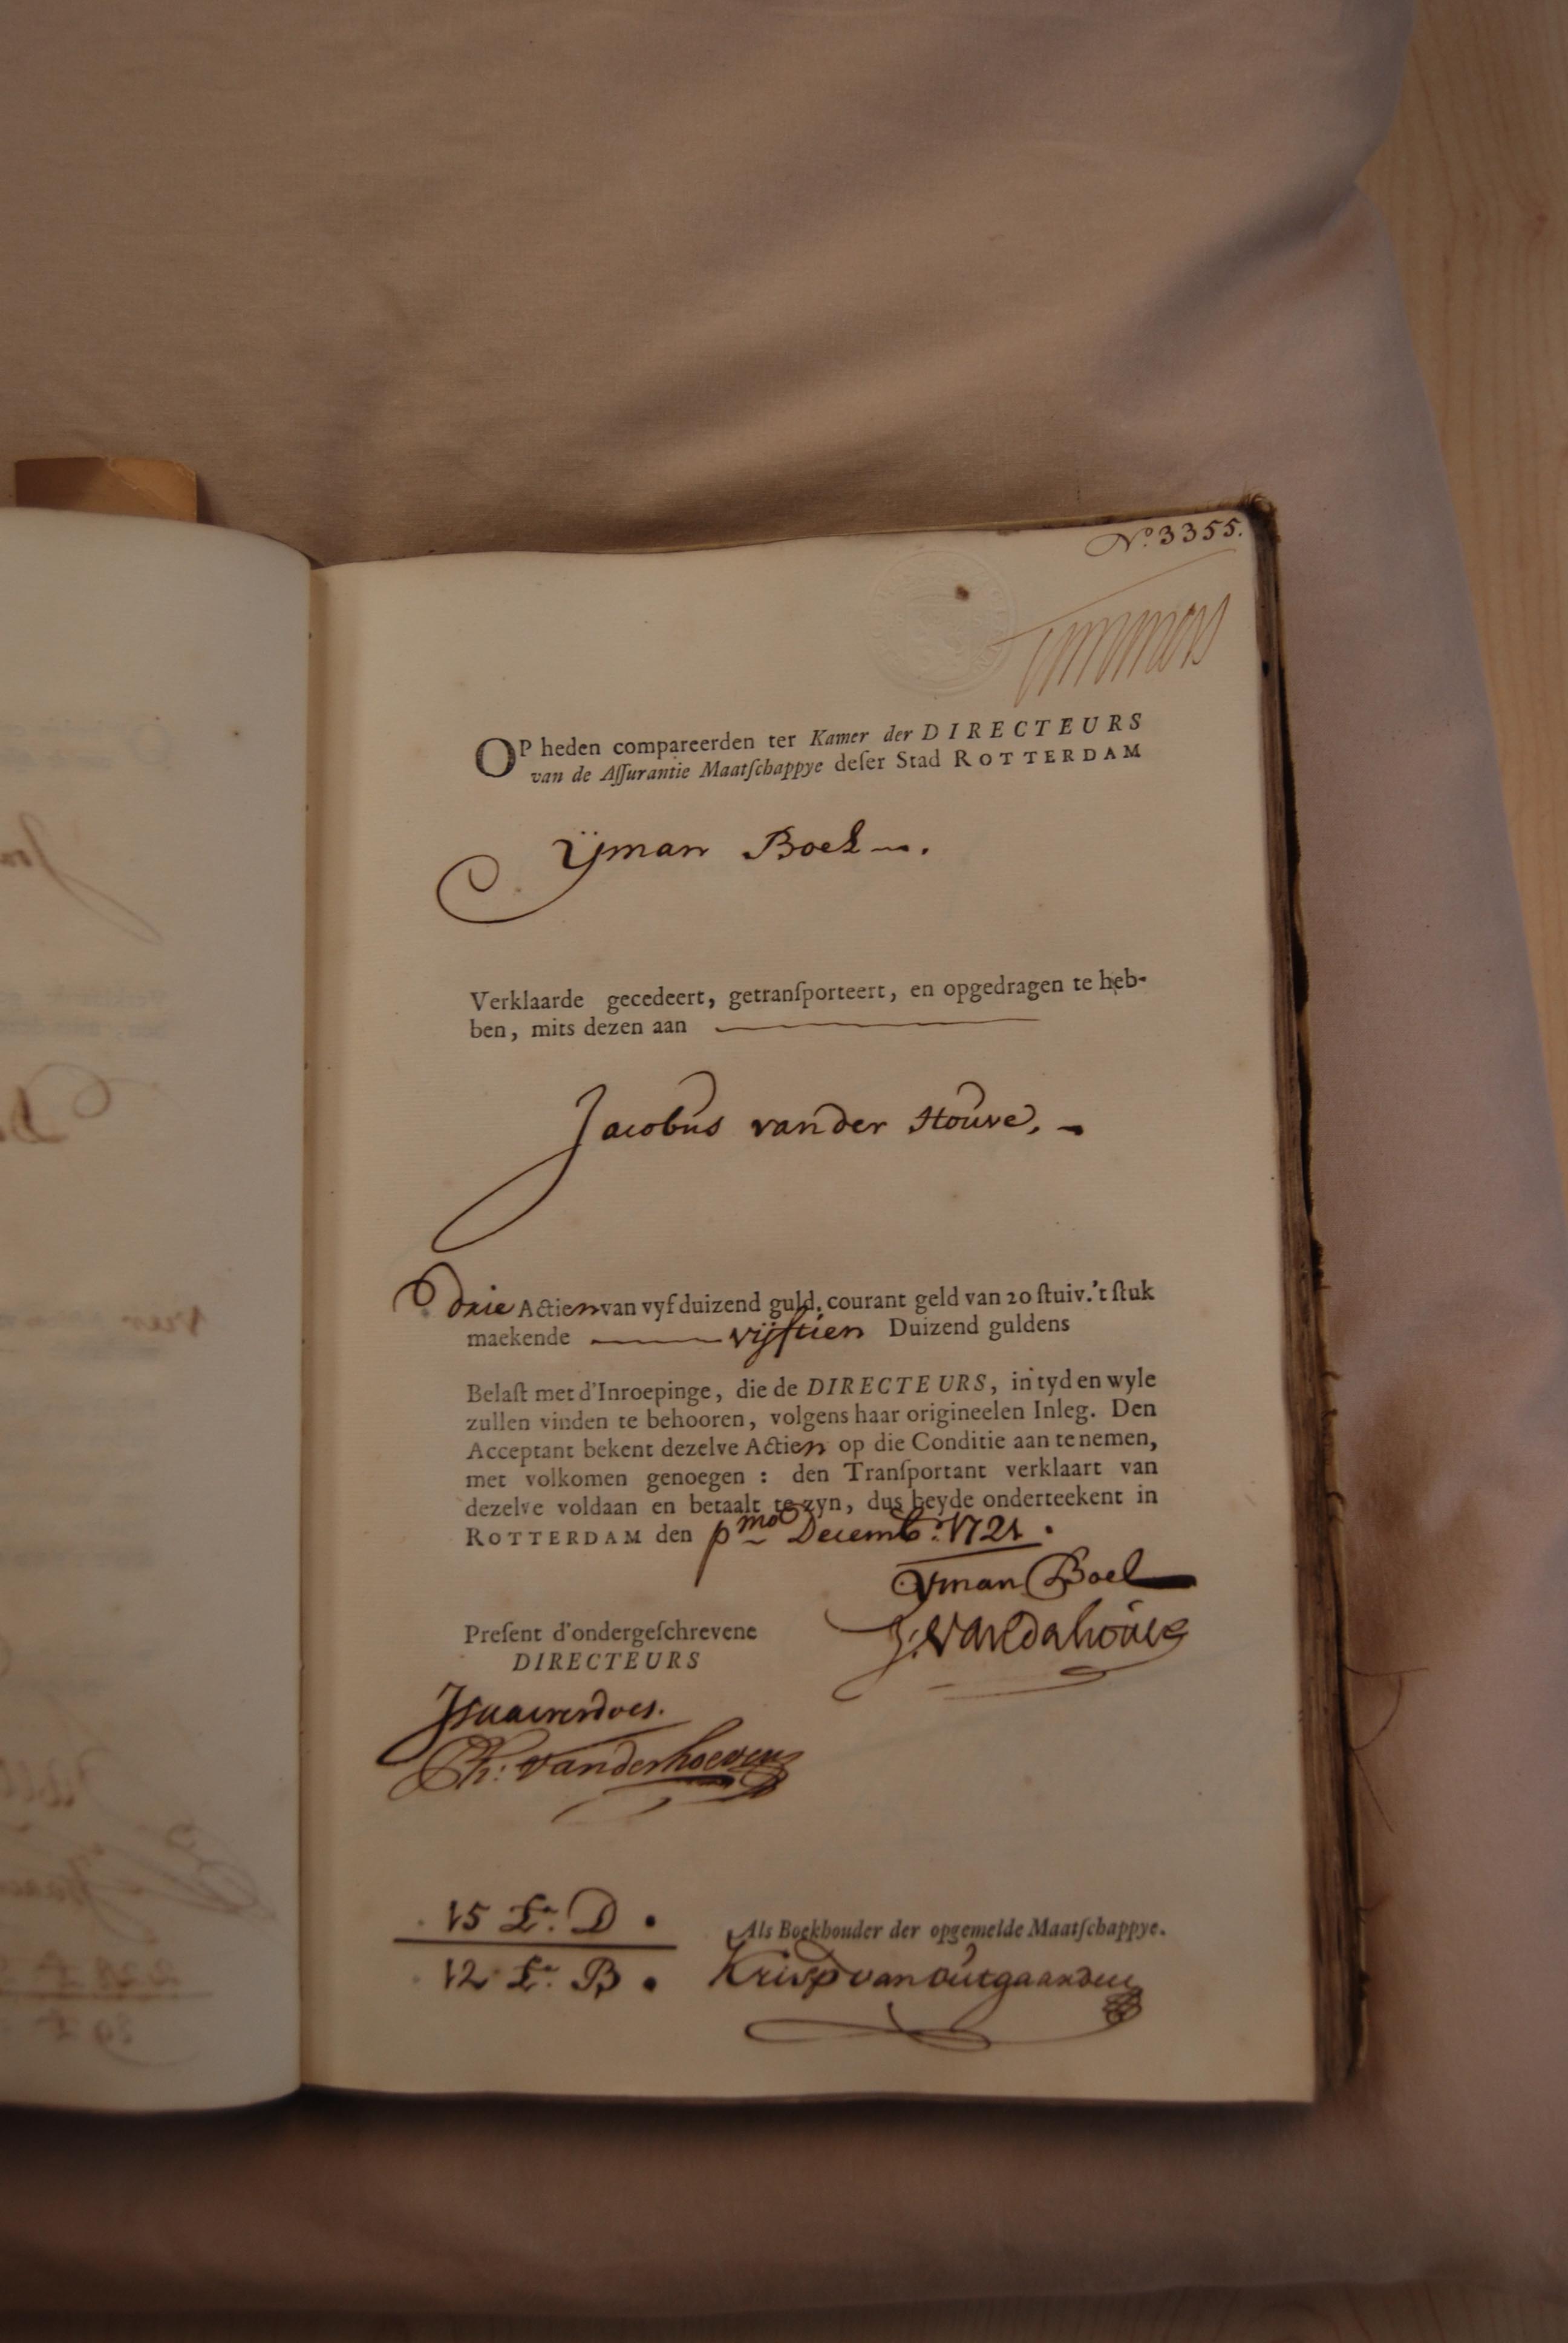 No. 3355.
OP heden compareerden ter Kamer der DIRECTEURS
van de Aſſurantie Maatſchappye deſer Stad ROTTERDAM
Yman Boel
Verklaarde gecedeert, getranſporteert, en opgedragen te heb-
ben, mits dezen aan
Jacobus vander Houve,
drie Actien van vyf duizend guld. courant geld van 20 ſtuiv. 't ſtuk
maekende vijftien Duizend guldens
Belaſt met d'Inroepinge, die de DIRECTEURS, in tyd en wyle
zullen vinden te behooren, volgens haar origineelen Inleg. Den
Acceptant bekent dezelve Actien op die Conditie aan te nemen,
met volkomen genoegen : den Tranſportant verklaart van
dezelve voldaan en betaalt te zyn, dus beyde onderteekent in
ROTTERDAM den pmo Decemb: 1721.
Yman Boel
Preſent d'ondergeſchrevene
DIRECTEURS
Ph: vanderhoeven
15 Lr. D.
12 Lr. B.
Als Boekhouder der opgemelde Maatſchappye.